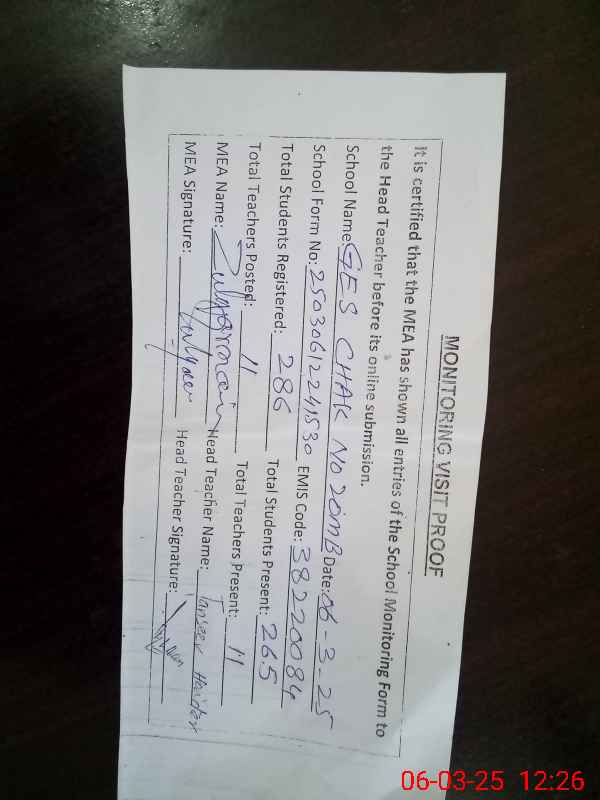 MONITORING VISIT PROOF
It is certified that the MEA has shown all entries of the School Monitoring Form to
the Head Teacher before its online submission.
School Name: GES CHAK NO 20MB Date: 06-3-25
School Form No: 25030612241530 EMIS Code: 38220084
Total Students Registered: 286 Total Students Present: 265
Total Teachers Posted: 11 Total Teachers Present: 11
MEA Name: Head Teacher Name: Tanseer Haider
MEA Signature: Head Teacher Signature:
06-03-25 12:26